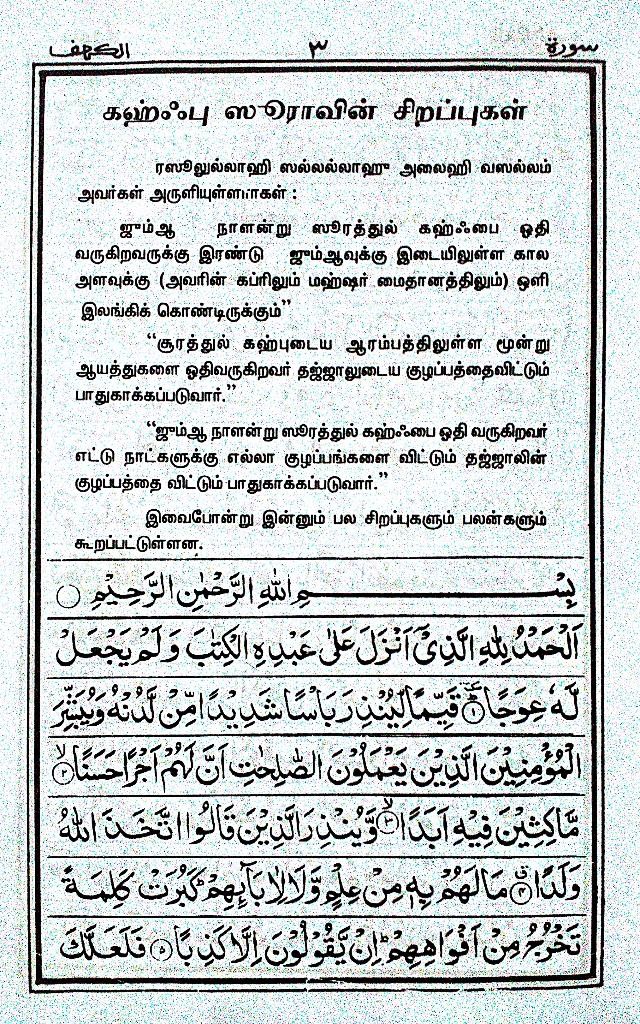 سورة ٣ الكهف
கஹ்ஃபு ஸூராவின் சிறப்புகள்
ரஸூலுல்லாஹி ஸல்லல்லாஹு அலைஹி வஸல்லம்
அவர்கள் அருளியுள்ளார்கள் :
ஜும்ஆ நாளன்று ஸூரத்துல் கஹ்ஃபை ஓதி
வருகிறவருக்கு இரண்டு ஜும்ஆவுக்கு இடையிலுள்ள கால
அளவுக்கு (அவரின் கப்ரிலும் மஹ்ஷர் மைதானத்திலும்) ஒளி
இலங்கிக் கொண்டிருக்கும்”
“சூரத்துல் கஹ்புடைய ஆரம்பத்திலுள்ள மூன்று
ஆயத்துகளை ஓதிவருகிறவர் தஜ்ஜாலுடைய குழப்பத்தைவிட்டும்
பாதுகாக்கப்படுவார்.”
“ஜும்ஆ நாளன்று ஸூரத்துல் கஹ்ஃபை ஓதி வருகிறவர்
எட்டு நாட்களுக்கு எல்லா குழப்பங்களை விட்டும் தஜ்ஜாலின்
குழப்பத்தை விட்டும் பாதுகாக்கப்படுவார்.”
இவைபோன்று இன்னும் பல சிறப்புகளும் பலன்களும்
கூறப்பட்டுள்ளன.
بِسْمِ اللهِ الرَّحْمٰنِ الرَّحِيْمِ
اَلْحَمْدُ لِلّٰهِ الَّذِيْٓ اَنْزَلَ عَلٰى عَبْدِهِ الْكِتٰبَ وَلَمْ يَجْعَلْ
لَّهٗ عِوَجًا ۜ ١ قَيِّمًا لِّيُنْذِرَ بَاْسًا شَدِيْدًا مِّنْ لَّدُنْهُ وَيُبَشِّرَ
الْمُؤْمِنِيْنَ الَّذِيْنَ يَعْمَلُوْنَ الصّٰلِحٰتِ اَنَّ لَهُمْ اَجْرًا حَسَنًا ۙ ٢
مَّاكِثِيْنَ فِيْهِ اَبَدًا ۙ ٣ وَّيُنْذِرَ الَّذِيْنَ قَالُوا اتَّخَذَ اللهُ
وَلَدًا ۗ ٤ مَا لَهُمْ بِهٖ مِنْ عِلْمٍ وَّلَا لِاٰبَآئِهِمْ ۗ كَبُرَتْ كَلِمَةً
تَخْرُجُ مِنْ اَفْوَاهِهِمْ ۗ اِنْ يَّقُوْلُوْنَ اِلَّا كَذِبًا ٥ فَلَعَلَّكَ